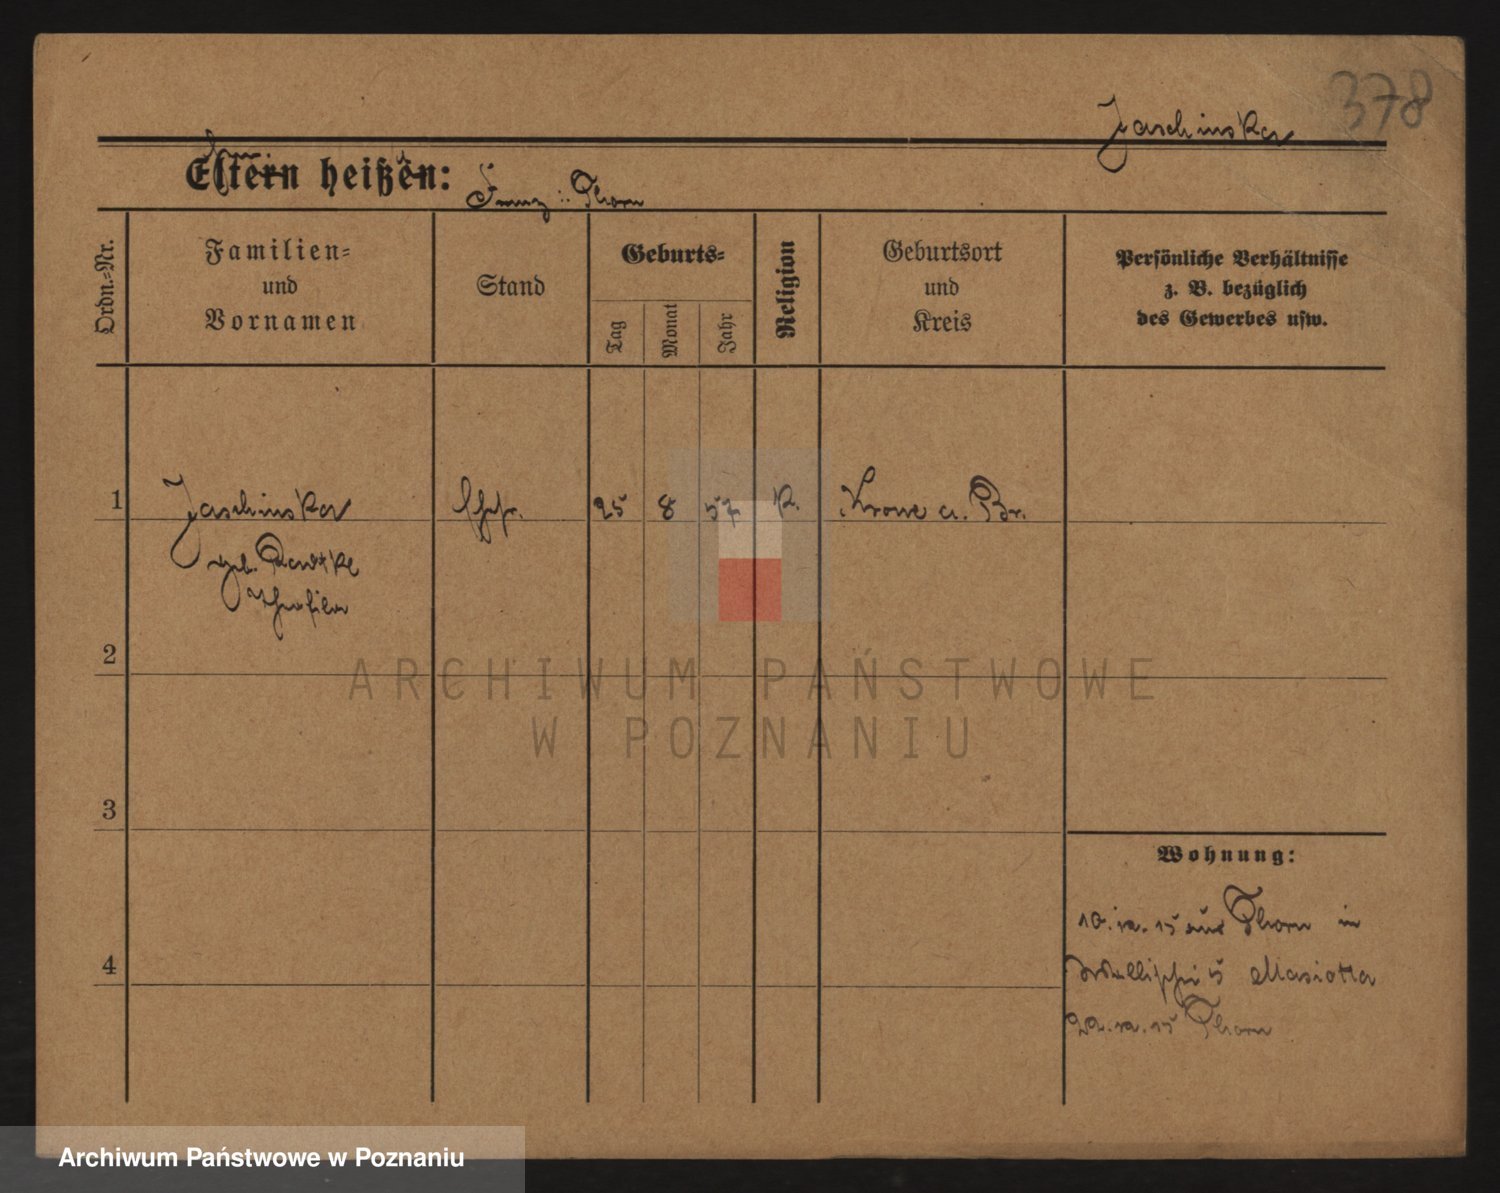 378
Jaschinska
Eltern heißen:
Franz :: Thorn
Ordn.-Nr.
Familien-
und
Vornamen
Stand
Geburts-
Tag
Monat
Jahr
Religion
Geburtsort
und
Kreis
Persönliche Verhältnisse
z. B. bezüglich
des Gewerbes usw.
1 Jaschinska Ehefr. 25 8 57 K. Krone a. Br.
geb. Radtke
Theofila
2
3
4
Wohnung:
10.12.15 aus Thorn in
Wallischei 5
22.12.15 Thorn
ARCHIWUM PAŃSTWOWE
W POZNANIU
Archiwum Państwowe w Poznaniu